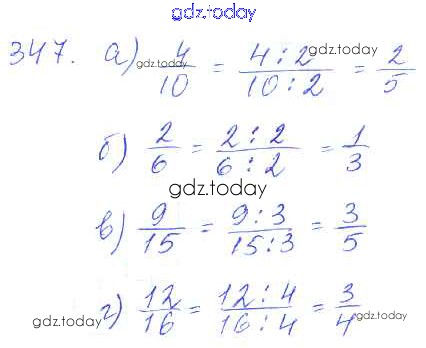 gdz.today
347. а) 4/10 = 4:2/10:2 = 2/5
gdz.today gdz.today
б) 2/6 = 2:2/6:2 = 1/3
gdz.today
в) 9/15 = 9:3/15:3 = 3/5
г) 12/16 = 12:4/16:4 = 3/4
gdz.today gdz.today